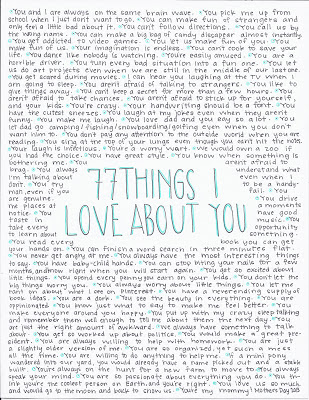 *You and I are always on the same brain wave. *You pick me up from
school when I just don't want to go. *You can make fun of strangers and
only feel a little bad about it. *You can't follow directions. *You call us by
the wrong name. *You can make a big bag of candy disappear almost instantly.
*You get addicted to video games. *You let us make fun of you. *You
make fun of us. *Your imagination is endless. *You can't cook to save your
life. *You dance like nobody is watching. *You're easily amused. *You are a
horrible driver. *You turn every bad situation into a fun one. *You let
us do art projects even when we are still in the middle of our last one.
*You get scared during movies. *I can hear you laughing at the TV when I
am going to sleep. *You aren't afraid of talking to strangers. *You like to
give things away. *You can't keep a secret for more than a few hours. *You
aren't afraid to take chances. *You aren't afraid to stick up for yourself,
and your kids. *You're crazy. *Your handwriting should be a font. *You
have the cutest sneezes. *You laugh at my jokes even when they aren't
funny. *You make me laugh. *You love dad and you say so a lot. *You
let dad go camping/fishing/snowboarding/golfing even when you don't
want him to. *You don't pay any attention to the outside world when you are
reading. *You sing at the top of your lungs even though you can't hit the notes.
*Your laugh is infectious. *You're a worry wart. *You would own a zoo if
you had the choice. *You have great style. *You know when something is
bothering me. *You aren't afraid to
brag. *You always understand what
I'm talking about even when I
don't. *You try to be a handy-
man, even if you fail. *You
are genuine. *You drive
me places at a moments
notice. *You have good
taste in music. *You
take every opportunity
to learn about something.
*You read every book you can get
your hands on. *You can finish a word search in three minutes flat.
*You never get angry at me. *You always have the most interesting things
to say. *You have baby-child hands. *You can stop biting your nails for a few
months, and know right when you will start again. *You get so excited about
little things. *You spend every penny you earn on your kids. *You don't let the
big things worry you. *You always worry about little things. *You let me
rant on about what I see on Pinterest. *You have a never ending supply of
book ideas. *You are a dork. *You see the beauty in everything. *You are
opinionated. *You know just what to say to make me feel better. *You
make everyone around you happy. *You put up with my crazy sleep talking
and remember them well enough to tell me about them the next day. *You
are just the right amount of awkward. *We always have something to talk
about. *You get so worked up about politics. *You would make a great pre-
sident. *You are always willing to help with homework. *You are just
a slightly older version of me. *You are so organized, yet such a mess
all the time. *You are willing to do anything to help me. *If a mini pony
wandered into our yard, you would already have a name picked out and a stable
built. *You're always on the hunt for a new farm to move to. *You always
speak your mind. *You are so passionate about everything you do. *You th-
ink you're the coolest person on Earth, and you're right. *You love us so much
and would go to the moon and back to show us. *You're my mommy! Mothers Day 2013
77 THINGS
I LOVE ABOUT YOU